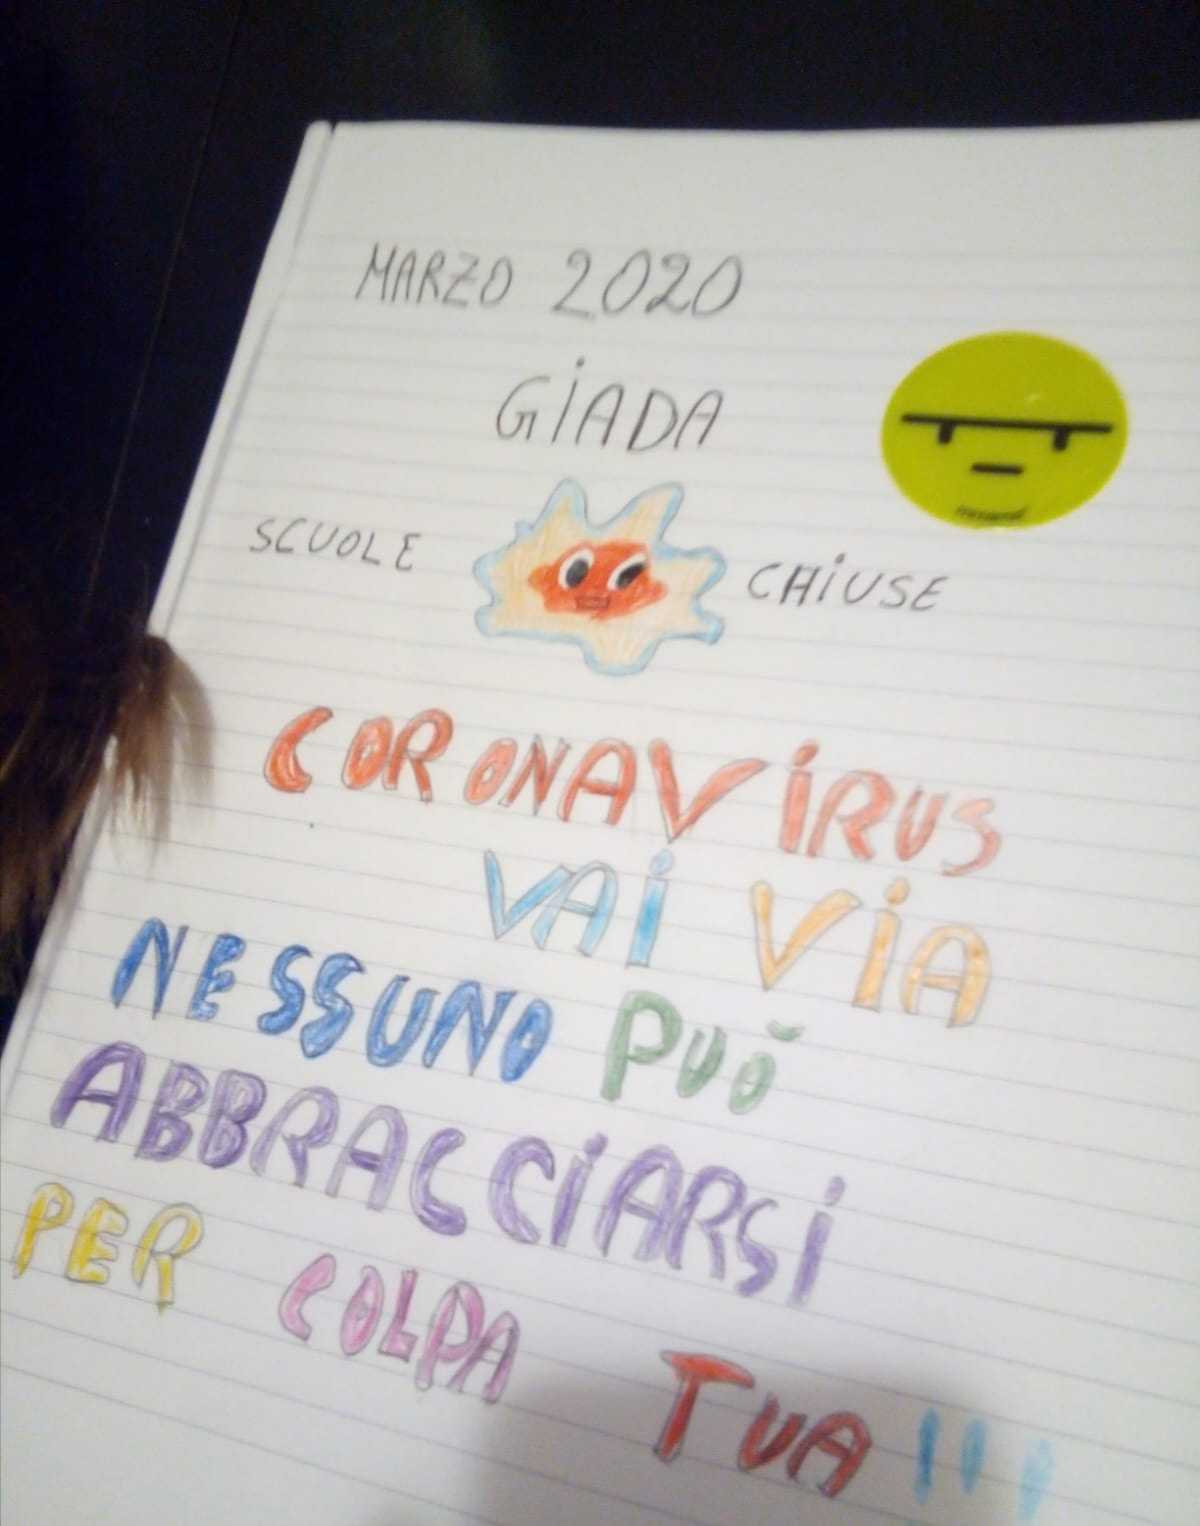 MARZO 2020
GiADA
SCUOLE CHiUSE
CORONAViRUS
VAi ViA
NESSUNO PUÒ
ABBRACCiARSi
PER COLPA TUA!!!